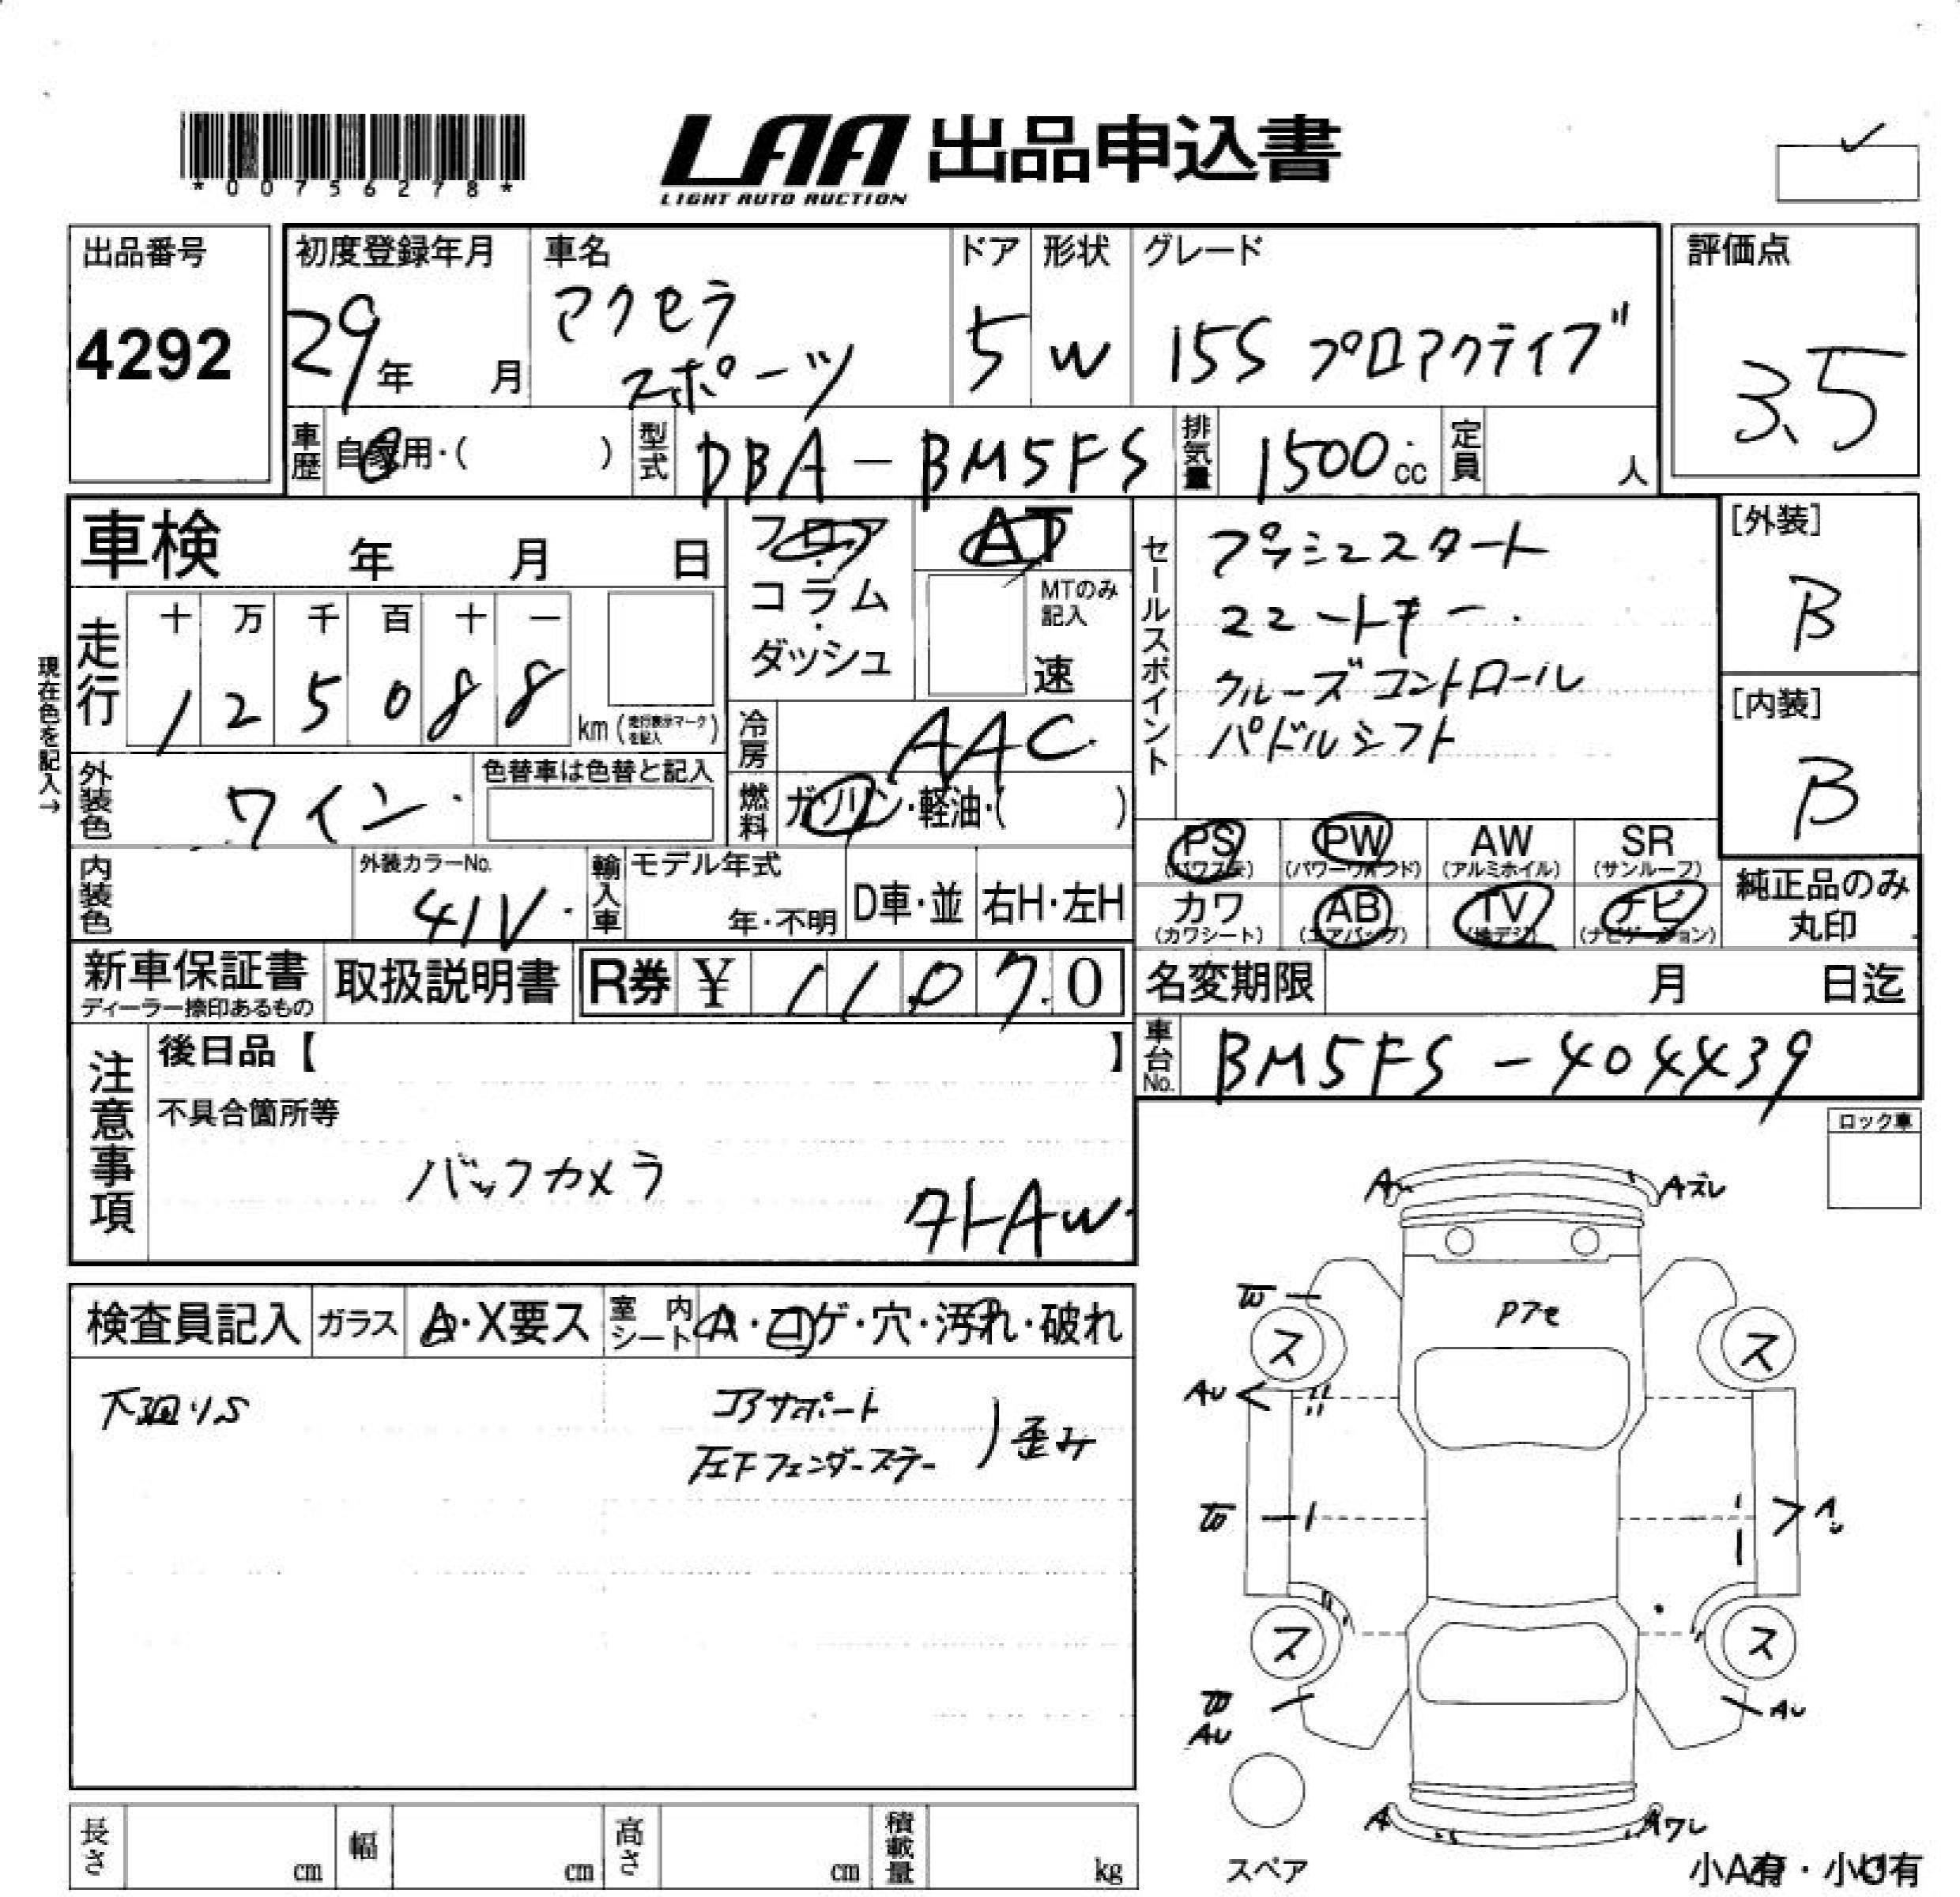 *00756278*
LAA 出品申込書
LIGHT AUTO AUCTION
出品番号
4292
初度登録年月
29年 月
車名
アクセラ
スポーツ
ドア
5
形状
W
グレード
15S プロアクティブ
評価点
3.5
車歴 自家用・( )
型式 DBA-BM5FS
排気量 1500cc
定員 人
車検 年 月 日
フロア
・
コラム
・
ダッシュ
AT
MTのみ
記入
速
セールスポイント
プッシュスタート
スマートキー
クルーズコントロール
パドルシフト
[外装]
B
[内装]
B
現在色を記入→
走行
十 万 千 百 十 一
1 2 5 0 8 8
km(走行表示マークを記入)
冷房 AAC
外装色 ワイン
色替車は色替と記入
燃料 ガソリン・軽油・( )
PS (パワステ)
PW (パワーウインド)
AW (アルミホイル)
SR (サンルーフ)
カワ (カワシート)
AB (エアバッグ)
TV (地デジ)
ナビ (ナビゲーション)
純正品のみ
丸印
内装色
外装カラーNo.
41V
輸入車
モデル年式
年・不明
D車・並
右H・左H
新車保証書
ディーラー捺印あるもの
取扱説明書
R券 ¥ 11070
名変期限 月 日迄
車台No. BM5FS-404439
注意事項
後日品【 】
不具合箇所等
バックカメラ
外AW
ロック車
検査員記入
ガラス A・X要ス
室内シート A・コゲ・穴・汚れ・破れ
下廻りS
コアサポート
左Fフェンダーステー
)歪み
A
Aズレ
Pアセ
ス
ス
AU
ス
ス
AU
AU
A
Aワレ
スペア
小A有・小U有
長さ cm
幅 cm
高さ cm
積載量 kg